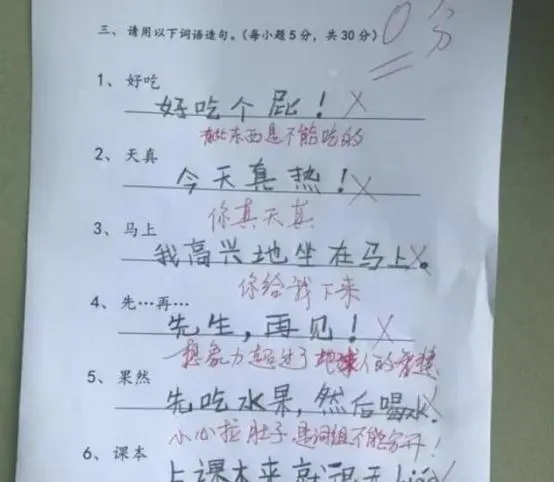 三、请用以下词语造句。(每小题5分,共30分) 0分
1、好吃
好吃个屁! ×
有些东西是不能吃的
2、天真
今天真热! ×
你真天真
3、马上
我高兴地坐在马上。 ×
你给我下来
4、先…再…
先生,再见! ×
想象力超过了地球人的智慧
5、果然
先吃水果,然后喝水. ×
小心拉肚子,是词组不能分开!
6、课本
上课本来就很无liáo ×